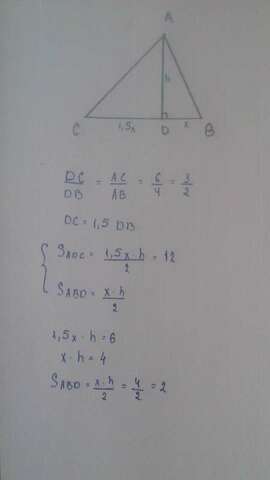 A
h
C 1,5x D x B
DC/DB = AC/AB = 6/4 = 3/2
DC = 1,5 DB
{ S_ADC = 1,5x·h/2 = 12
S_ABD = x·h/2
1,5x·h = 6
x·h = 4
S_ABD = x·h/2 = 4/2 = 2